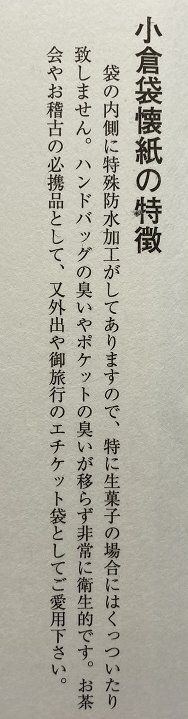 小倉袋懐紙の特徴
袋の内側に特殊防水加工がしてありますので、特に生菓子の場合にはくっついたり
致しません。ハンドバッグの臭いやポケットの臭いが移らず非常に衛生的です。お茶
会やお稽古の必携品として、又外出や御旅行のエチケット袋としてご愛用下さい。